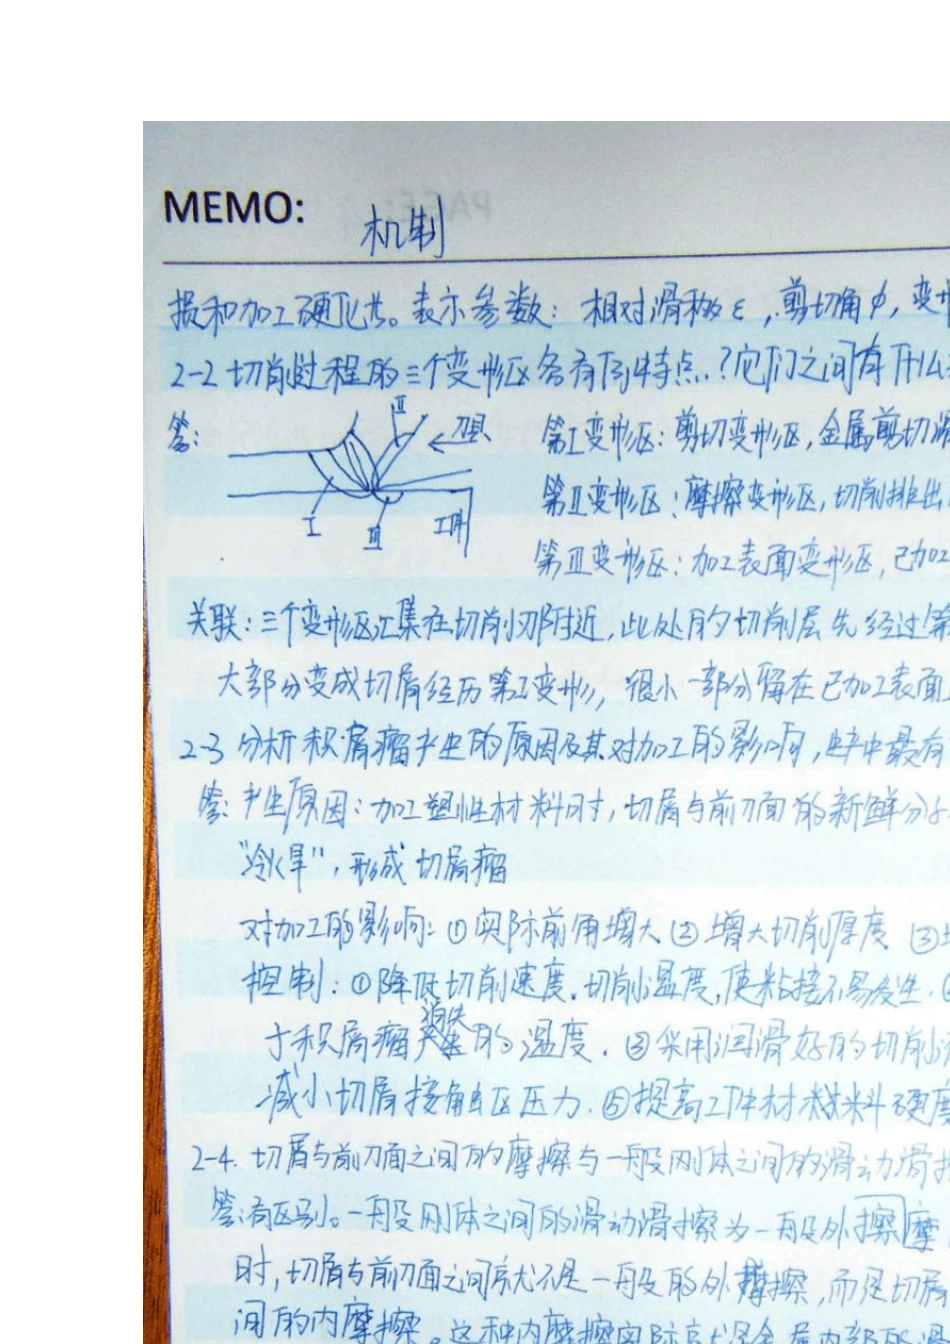 MEMO:
机制
损和加工硬化共。表示参数：相对滑移 ε，剪切角 φ，变
2-2 切削过程的三个变形区各有何特点？它们之间有什么
答：
Ⅱ
刀具
Ⅰ
Ⅲ
工件
第Ⅰ变形区：剪切变形区，金属剪切滑
第Ⅱ变形区：摩擦变形区，切削排出
第Ⅲ变形区：加工表面变形区，已加工
关联：三个变形区汇集在切削刃附近，此处的切削层先经过第
大部分变成切屑经历第Ⅱ变形，很小一部分留在已加工表面
2-3 分析积屑瘤产生的原因及其对加工的影响，生产中最有
答：产生原因：加工塑性材料时，切屑与前刀面的新鲜分
"冷焊"，形成切屑瘤
对加工的影响：① 实际前角增大 ② 增大切削厚度 ③
控制：① 降低切削速度，切削温度，使粘接不易发生．
消失
于积屑瘤的温度．③ 采用润滑好的切削
减小切屑接触区压力．⑤ 提高工件材料硬度
2-4. 切屑与前刀面之间的摩擦与一般刚体之间的滑动滑
答：有区别。一般刚体之间的滑动滑擦为一般外擦摩
时，切屑与前刀面之间就不是一般的外摩擦，而是切屑
间的内摩擦。这种内摩擦实际就是金属内部的滑